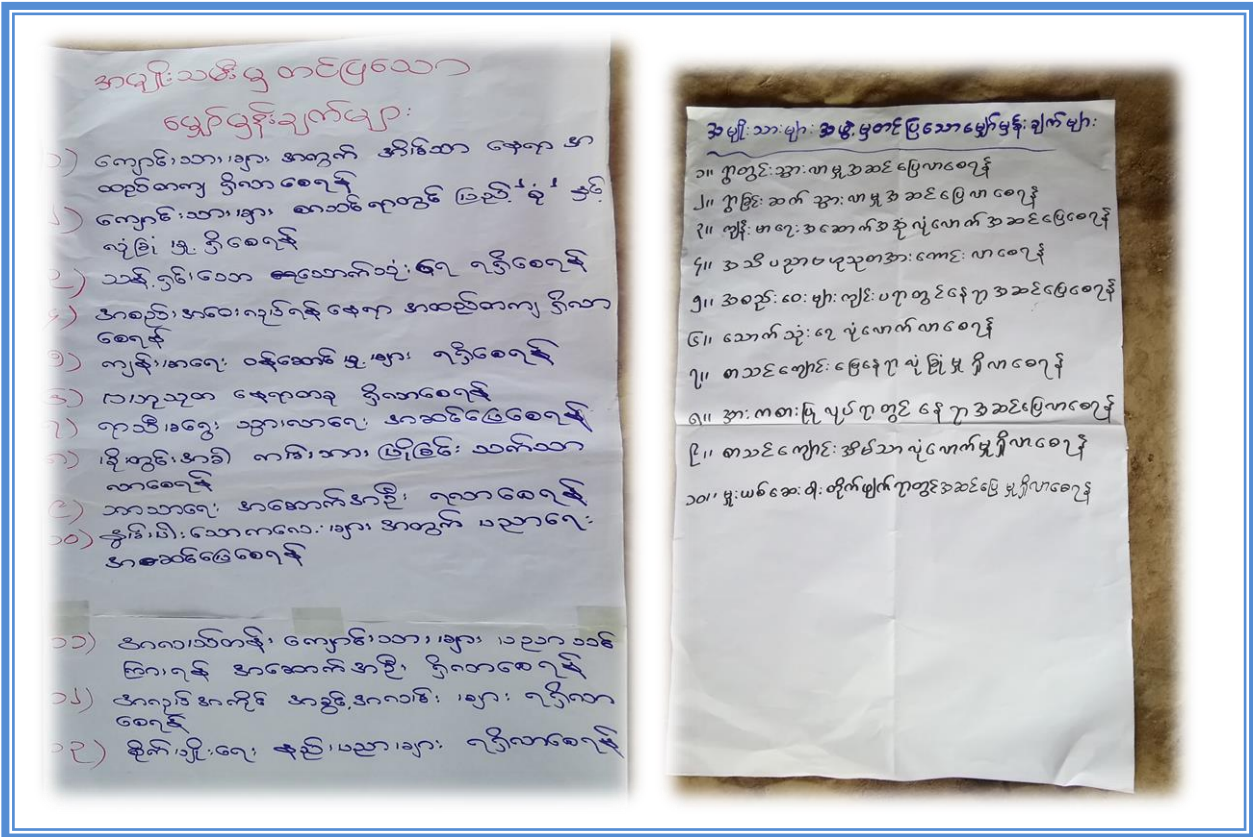 အမျိုးသမီးမှ တင်ပြသော
မျှော်မှန်းချက်များ
၁) ကျောင်းသားများ အတွက် အိမ်သာ နေရာ အ
ထည်တကျ ရှိလာစေရန်
၂) ကျောင်းသားများ စာသင်ရာတွင် ပြည့်စုံ နှင့်
လုံခြုံမှု ရှိစေရန်
၃) သန့်ရှင်းသော သောက်သုံးရေ ရရှိစေရန်
၄) အစည်းအဝေးလုပ်ရန်နေရာ အထည်တကျ ရှိလာ
စေရန်
၅) ကျန်းမာရေး ဝန်ဆောင်မှုများ ရရှိစေရန်
၆) ဗဟုသုတ နေရာတခု ရှိလာစေရန်
၇) ရာသီမရွေး သွားလာရေး အဆင်ပြေစေရန်
၈) မိုးတွင်းအခါ ကမ်းပါး ပြိုခြင်း သက်သာ
လာစေရန်
၉) ဘာသာရေး အဆောက်အဦး ရလာစေရန်
၁၀) နွမ်းပါးသောကလေးများ အတွက် ပညာရေး
အဆင်ပြေစေရန်
၁၁) အလယ်တန်း ကျောင်းသားများ ပညာသင်
ကြားရန် အဆောက်အဦး ရှိလာစေရန်
၁၂) အလုပ်အကိုင် အခွင့်အလမ်းများ ရရှိလာ
စေရန်
၁၃) စိုက်ပျိုးရေး နည်းပညာများ ရရှိလာစေရန်
အမျိုးသားများအဖွဲ့မှတင်ပြသောမျှော်မှန်းချက်များ
၁။ ရွာတွင်းသွားလာမှုအဆင်ပြေလာစေရန်
၂။ ရွာခြင်းဆက်သွားလာမှုအဆင်ပြေလာစေရန်
၃။ ကျန်းမာရေးအဆောက်အအုံလုံလောက်အဆင်ပြေစေရန်
၄။ အသိပညာဗဟုသုတအားကောင်းလာစေရန်
၅။ အစည်းဝေးများကျင်းပရာတွင်နေရာအဆင်ပြေစေရန်
၆။ သောက်သုံးရေလုံလောက်လာစေရန်
၇။ စာသင်ကျောင်းမြေနေရာလုံခြုံမှုရှိလာစေရန်
၈။ အားကစားပြုလုပ်ရာတွင်နေရာအဆင်ပြေလာစေရန်
၉။ စာသင်ကျောင်းအိမ်သာလုံလောက်မှုရှိလာစေရန်
၁၀။ မူးယစ်ဆေးဝါးတိုက်ဖျက်ရာတွင်အဆင်ပြေမှုရှိလာစေရန်